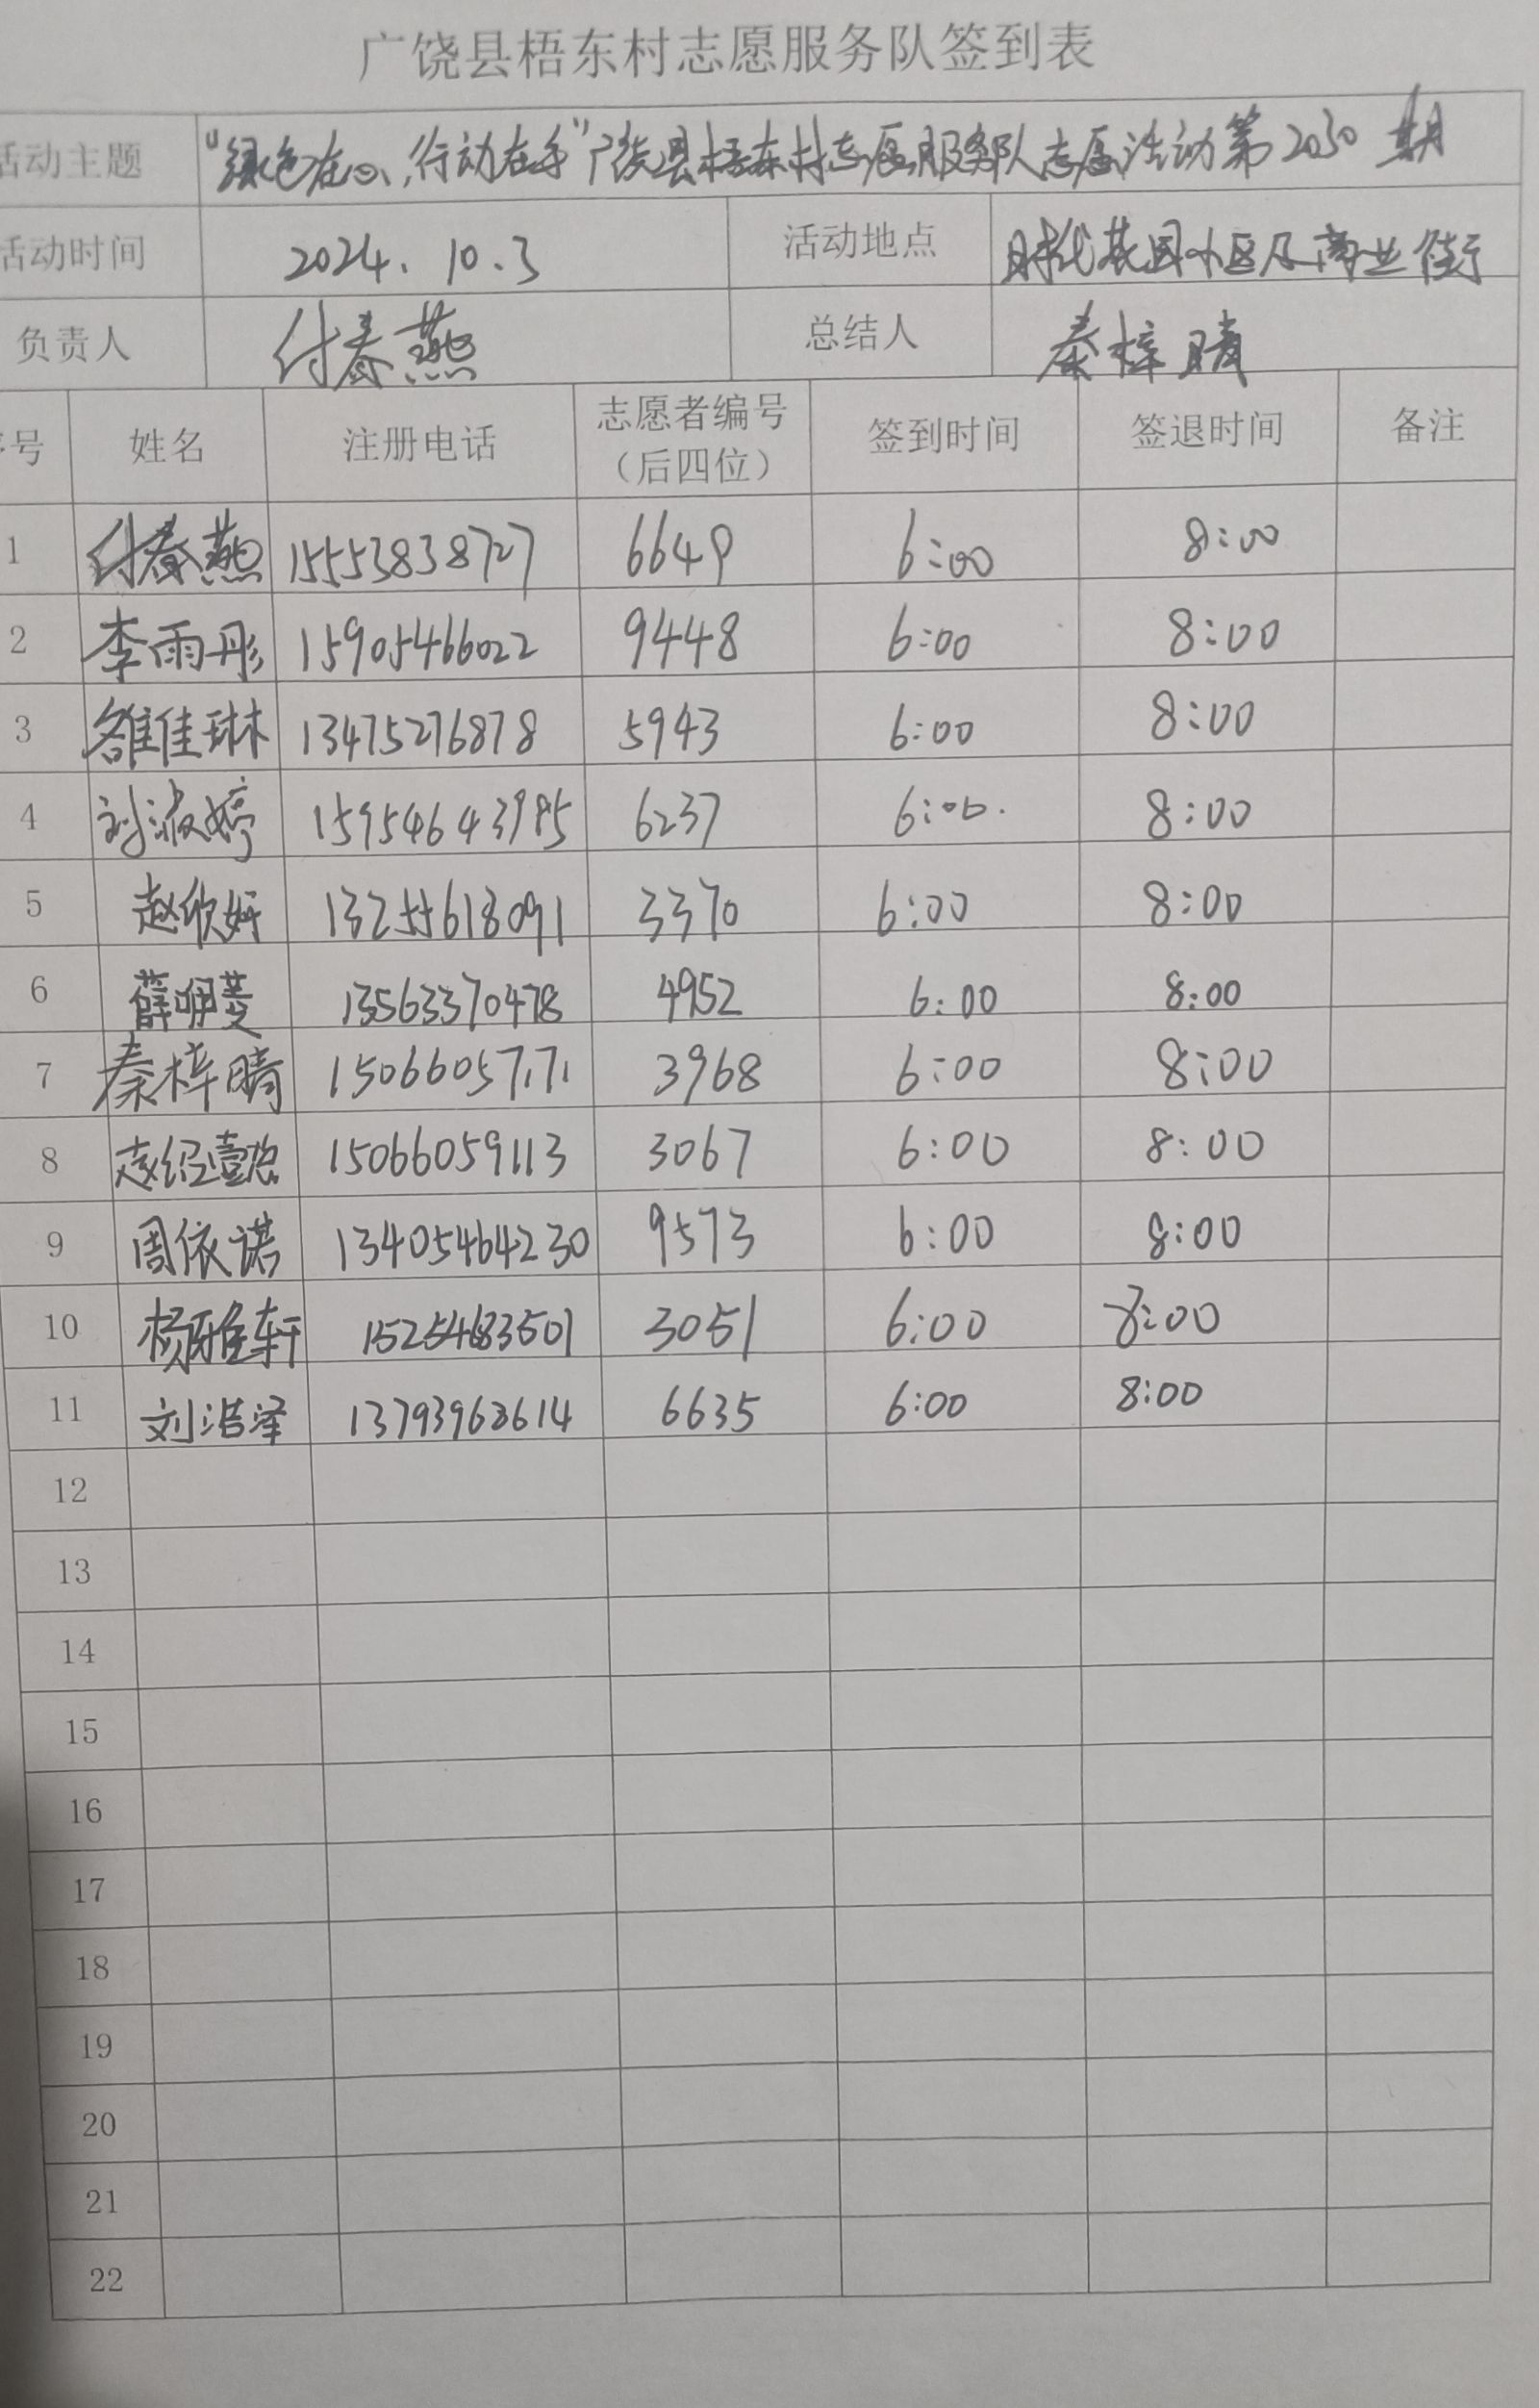 广饶县梧东村志愿服务队签到表
活动主题 "绿色在心,行动在手"广饶县梧东村志愿服务队志愿活动第2030期
活动时间 2024.10.3 活动地点 时代花园小区及商业街
负责人 付春燕 总结人 秦梓晴
序号 姓名 注册电话 志愿者编号 签到时间 签退时间 备注
（后四位）
1 付春燕 15553838727 6649 6:00 8:00
2 李雨彤 15905466022 9448 6:00 8:00
3 雒佳琳 13475276878 5943 6:00 8:00
4 刘淑婷 15954643985 6237 6:00. 8:00
5 赵欣妤 13255618091 3370 6:00 8:00
6 薛明菱 13563370478 4952 6:00 8:00
7 秦梓晴 15066057171 3968 6:00 8:00
8 15066059113 3067 6:00 8:00
9 周依诺 13405464230 9573 6:00 8:00
10 杨雅轩 15254683501 3051 6:00 8:00
11 刘浩泽 13793962614 6635 6:00 8:00
12
13
14
15
16
17
18
19
20
21
22